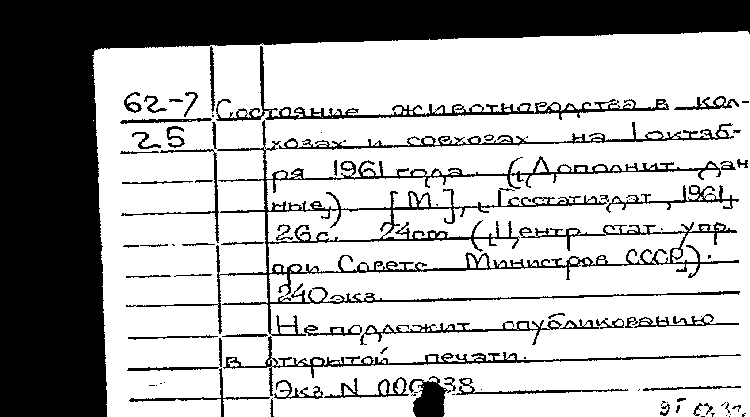 62-7 Состояние животноводства в кол-
25 хозах и совхозах на 1 октяб-
ря 1961 года. („Дополнит. дан
ные„) [М.], „Госстатиздат, 1961„
26 с. 24 cm („Центр. стат. упр.
при Совете Министров СССР„).
240 экз.
Не подлежит опубликованию
в открытой печати.
Экз. N 000238